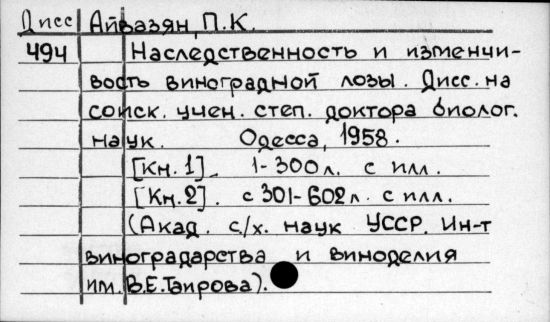 Дисс Айвазян, П.К.
494 Наследственность и изменчи-
вость виноградной лозы. Дисс. на
соиск. учен. степ. доктора биолог.
наук. Одесса, 1958.
[Кн. 1]. 1-300 л. с илл.
[Кн. 2]. с 301-602 л. с илл.
(Акад. с/х. наук УССР. Ин-т
виноградарства и виноделия
им. В.Е. Таирова).